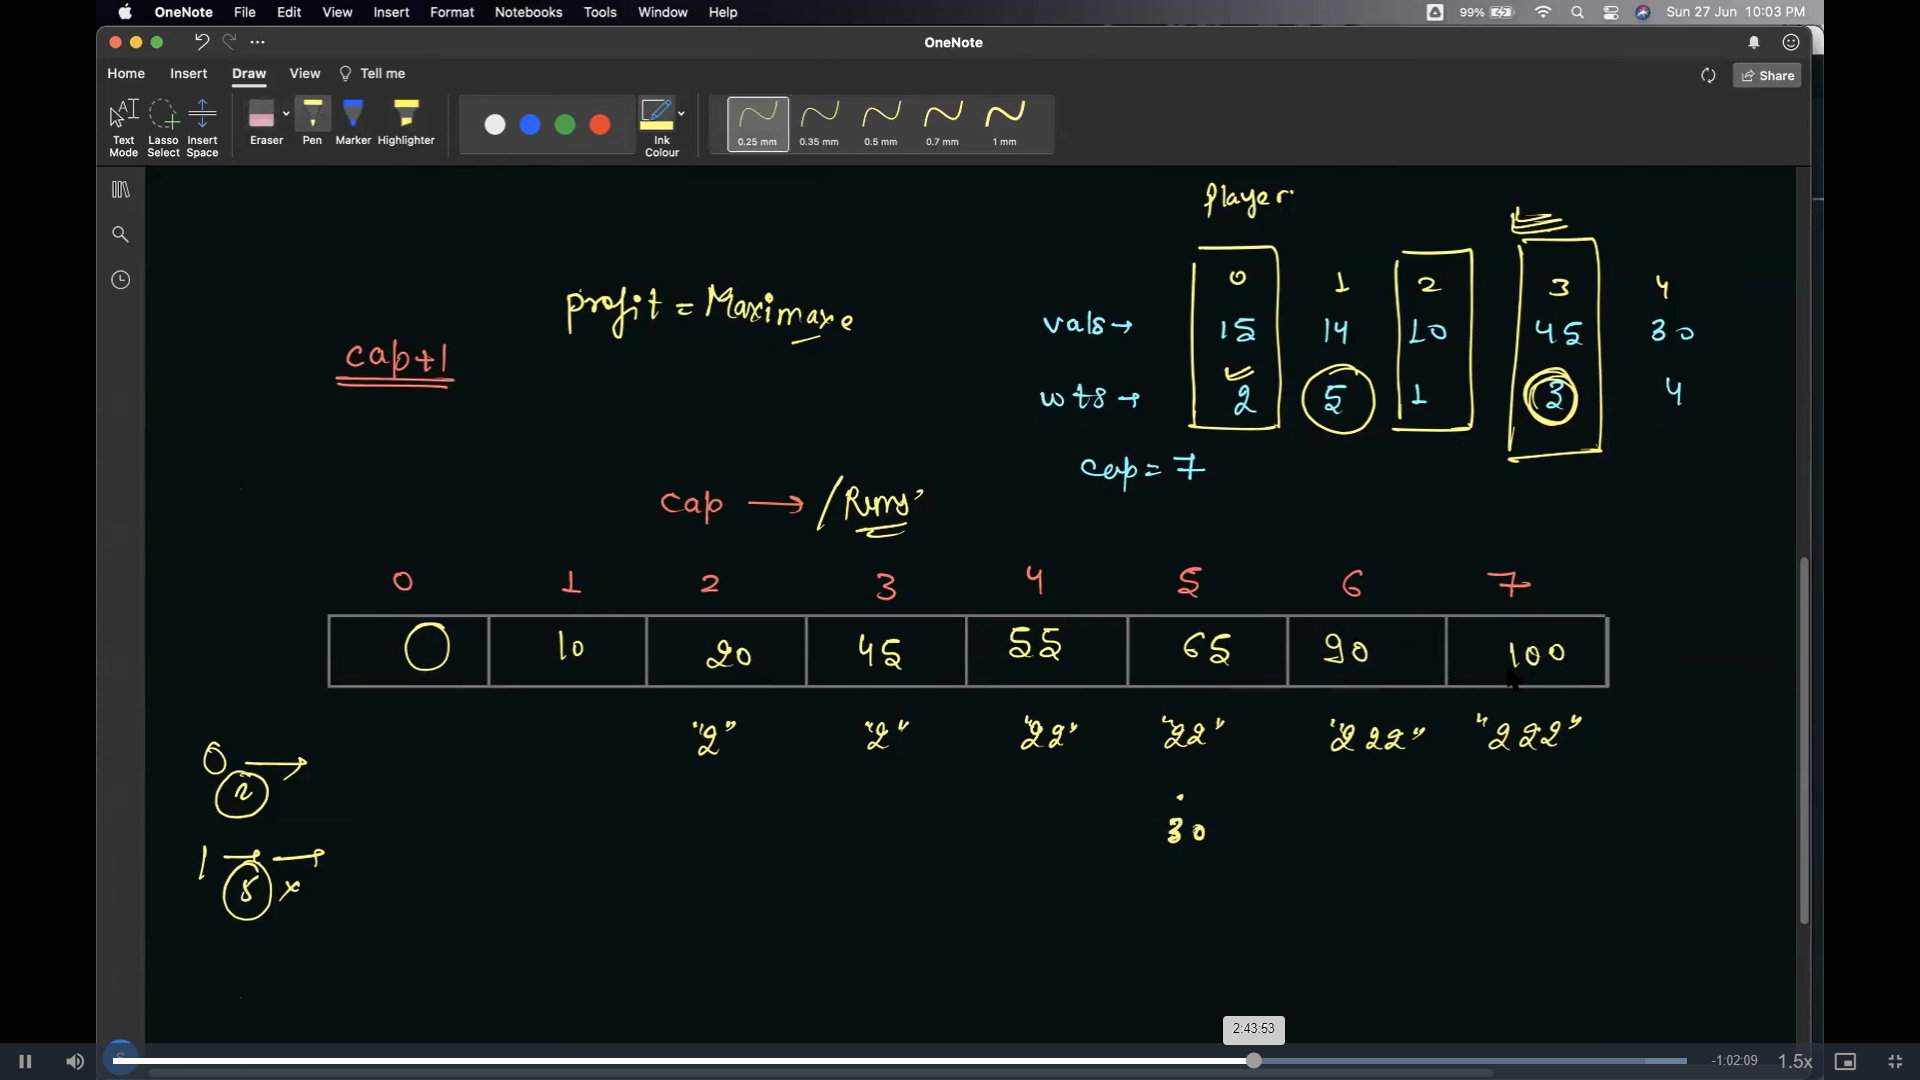 OneNote File Edit View Insert Format Notebooks Tools Window Help 99% Sun 27 Jun 10:03 PM
OneNote
Home Insert Draw View Tell me Share
Text Mode Lasso Select Insert Space Eraser Pen Marker Highlighter Ink Colour 0.25 mm 0.35 mm 0.5 mm 0.7 mm 1 mm
Player
0 1 2 3 4
profit = Maximaxe
vals → 15 14 10 45 30
cap+1
wts → 2 5 1 3 4
cap = 7
cap → / Runs
0 1 2 3 4 5 6 7
0 10 20 45 55 65 90 100
"2" "2" "22" "22" "222" "222"
0 →
2
30
1 → →
5 x
2:43:53
-1:02:09 1.5x